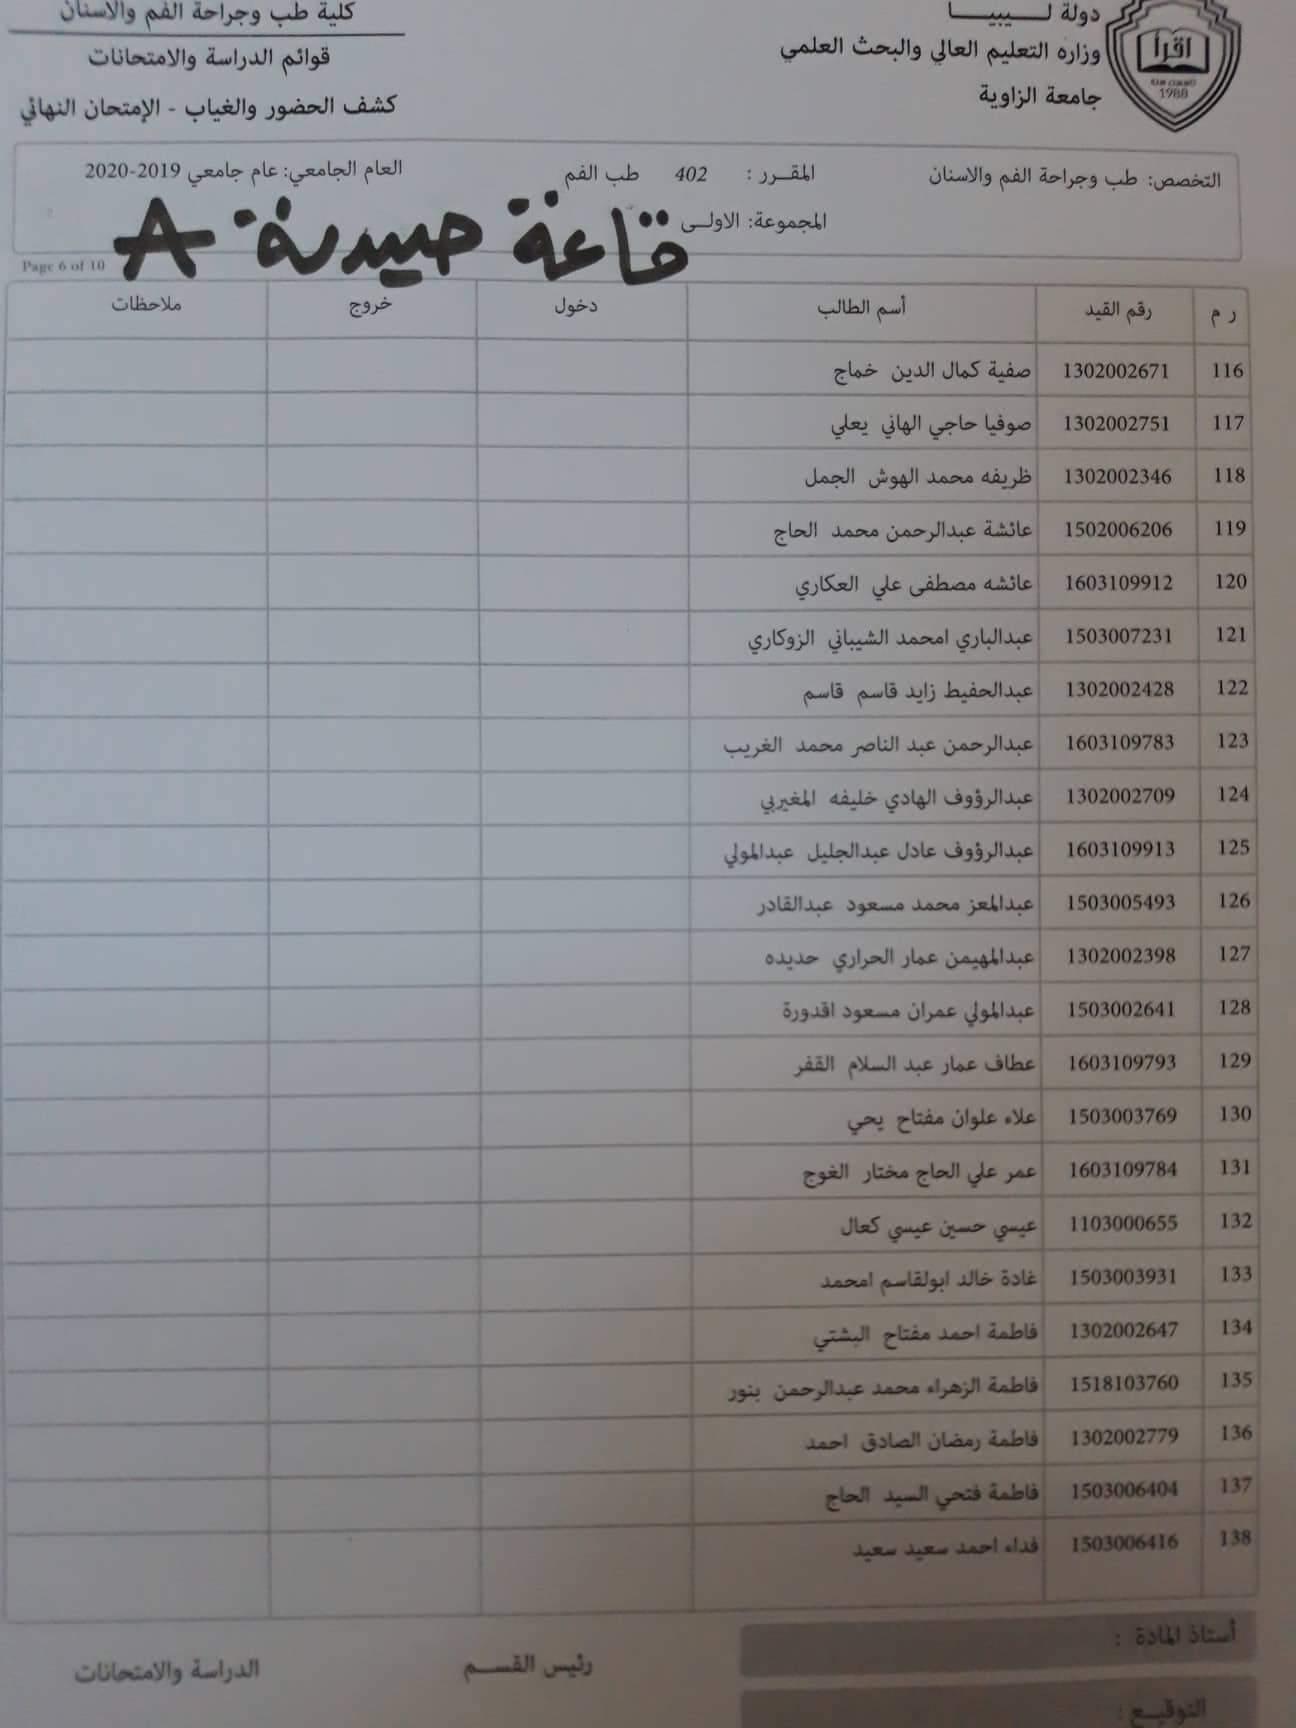 دولة لـــيبيـــا
وزاره التعليم العالي والبحث العلمي
جامعة الزاوية
اقرأ
1988
كلية طب وجراحة الفم والاسنان
قوائم الدراسة والامتحانات
كشف الحضور والغياب - الإمتحان النهائي
التخصص: طب وجراحة الفم والاسنان المقـــرر : 402 طب الفم العام الجامعي: عام جامعي 2019-2020
المجموعة: الاولــى
قاعة صيدلة A
Page 6 of 10
ر م رقم القيد أسم الطالب دخول خروج ملاحظات
116 1302002671 صفية كمال الدين خماج
117 1302002751 صوفيا حاجي الهاني يعلي
118 1302002346 ظريفه محمد الهوش الجمل
119 1502006206 عائشة عبدالرحمن محمد الحاج
120 1603109912 عائشه مصطفى علي العكاري
121 1503007231 عبدالباري امحمد الشيباني الزوكاري
122 1302002428 عبدالحفيظ زايد قاسم قاسم
123 1603109783 عبدالرحمن عبد الناصر محمد الغريب
124 1302002709 عبدالرؤوف الهادي خليفه المغيربي
125 1603109913 عبدالرؤوف عادل عبدالجليل عبدالمولي
126 1503005493 عبدالمعز محمد مسعود عبدالقادر
127 1302002398 عبدالمهيمن عمار الحراري حديده
128 1503002641 عبدالمولي عمران مسعود اقدورة
129 1603109793 عطاف عمار عبد السلام القفر
130 1503003769 علاء علوان مفتاح يحي
131 1603109784 عمر علي الحاج مختار الغوج
132 1103000655 عيسي حسين عيسي كعال
133 1503003931 غادة خالد ابولقاسم امحمد
134 1302002647 فاطمة احمد مفتاح البشتي
135 1518103760 فاطمة الزهراء محمد عبدالرحمن بنور
136 1302002779 فاطمة رمضان الصادق احمد
137 1503006404 فاطمة فتحي السيد الحاج
138 1503006416 فداء احمد سعيد سعيد
أستاذ المادة :
رئيس القســـم
الدراسة والامتحانات
التوقيـــع :